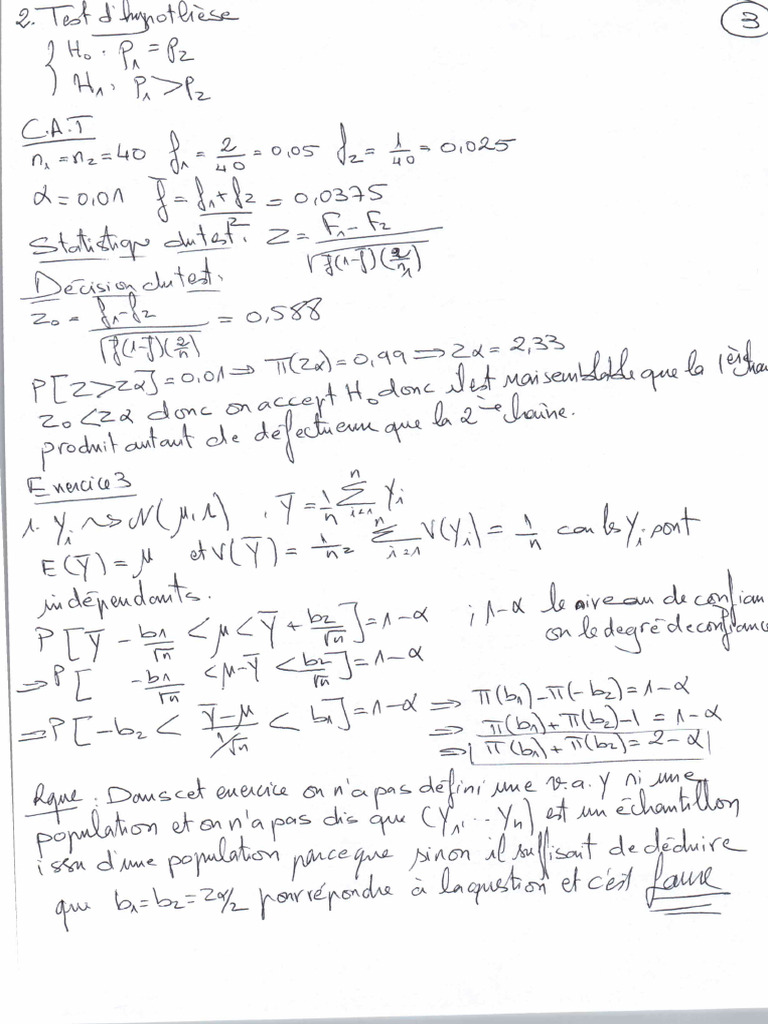 2. Test d'hypothèse
3
H₀ : P₁ = P₂
H₁ : P₁ > P₂
C.A.T
n₁ = n₂ = 40 f₁ = 2/40 = 0,05 f₂ = 1/40 = 0,025
α = 0,01 f = (f₁ + f₂)/2 = 0,0375
Statistique du test : Z = (F₁ - F₂)/√(f(1-f)(2/n))
Décision du test.
Z₀ = (f₁ - f₂)/√(f(1-f)(2/n)) = 0,588
P[Z > Zα] = 0,01 ⇒ π(Zα) = 0,99 ⇒ Zα = 2,33
Z₀ < Zα donc on accept H₀ donc il est vraisemblable que la 1ère chaî
produit autant de défectueux que la 2ème chaîne.
Exercice 3
1. Yᵢ ~> N(μ, 1) , Ȳ = 1/n Σⁿᵢ₌₁ Yᵢ
E(Ȳ) = μ et V(Ȳ) = 1/n² Σⁿᵢ₌₁ V(Yᵢ) = 1/n car les Yᵢ sont
indépendants.
P[Ȳ - b₁/√n < μ < Ȳ + b₂/√n] = 1-α ; 1-α le niveau de confian
ou le degré de confiance
⇒ P[ - b₁/√n < μ - Ȳ < b₂/√n] = 1-α
⇒ P[-b₂ < (Ȳ - μ)/(1/√n) < b₁] = 1-α ⇒ π(b₁) - π(-b₂) = 1-α
⇒ π(b₁) + π(b₂) - 1 = 1-α
⇒ π(b₁) + π(b₂) = 2-α
Rque : Dans cet exercice on n'a pas défini une v.a. Y ni une
population et on n'a pas dis que (Y₁, ... Yn) est un échantillon
issu d'une population parceque sinon il suffisait de déduire
que b₁ = b₂ = Zα/2 pour répondre à la question et c'est faux